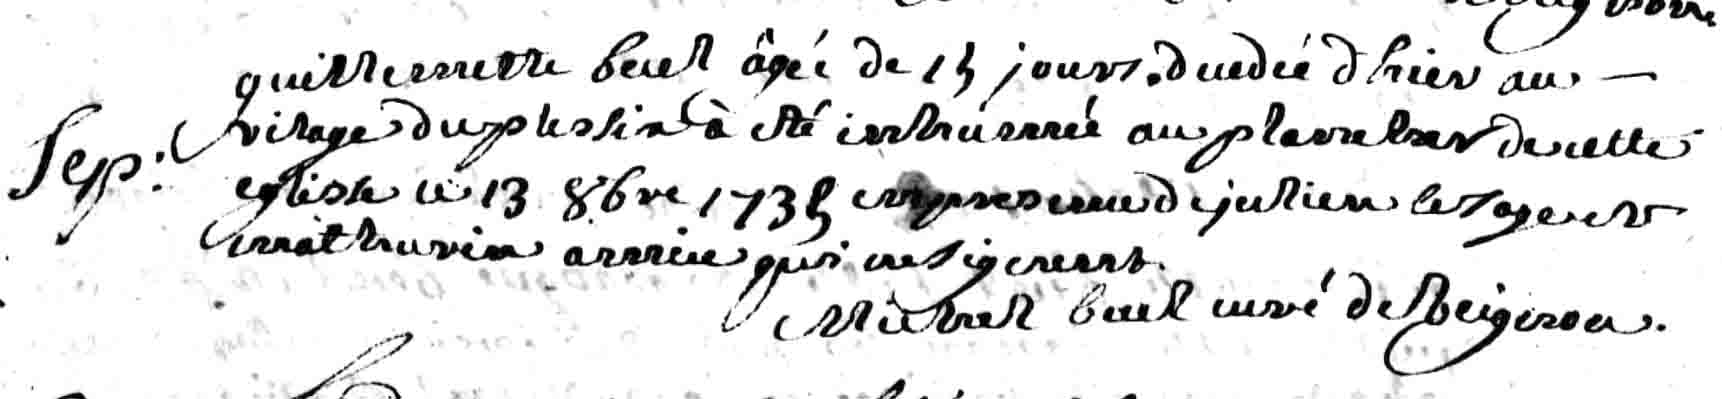 guillemette buel âgée de 15 jours. decedée d'hier au
Sep: vilage duplessix à été inhumée au placitre de cette
eglise le 13 8bre 1735 en presence de julien lesage et
mathurin amice qui ne signent.
Michel buel curé de Beignon.